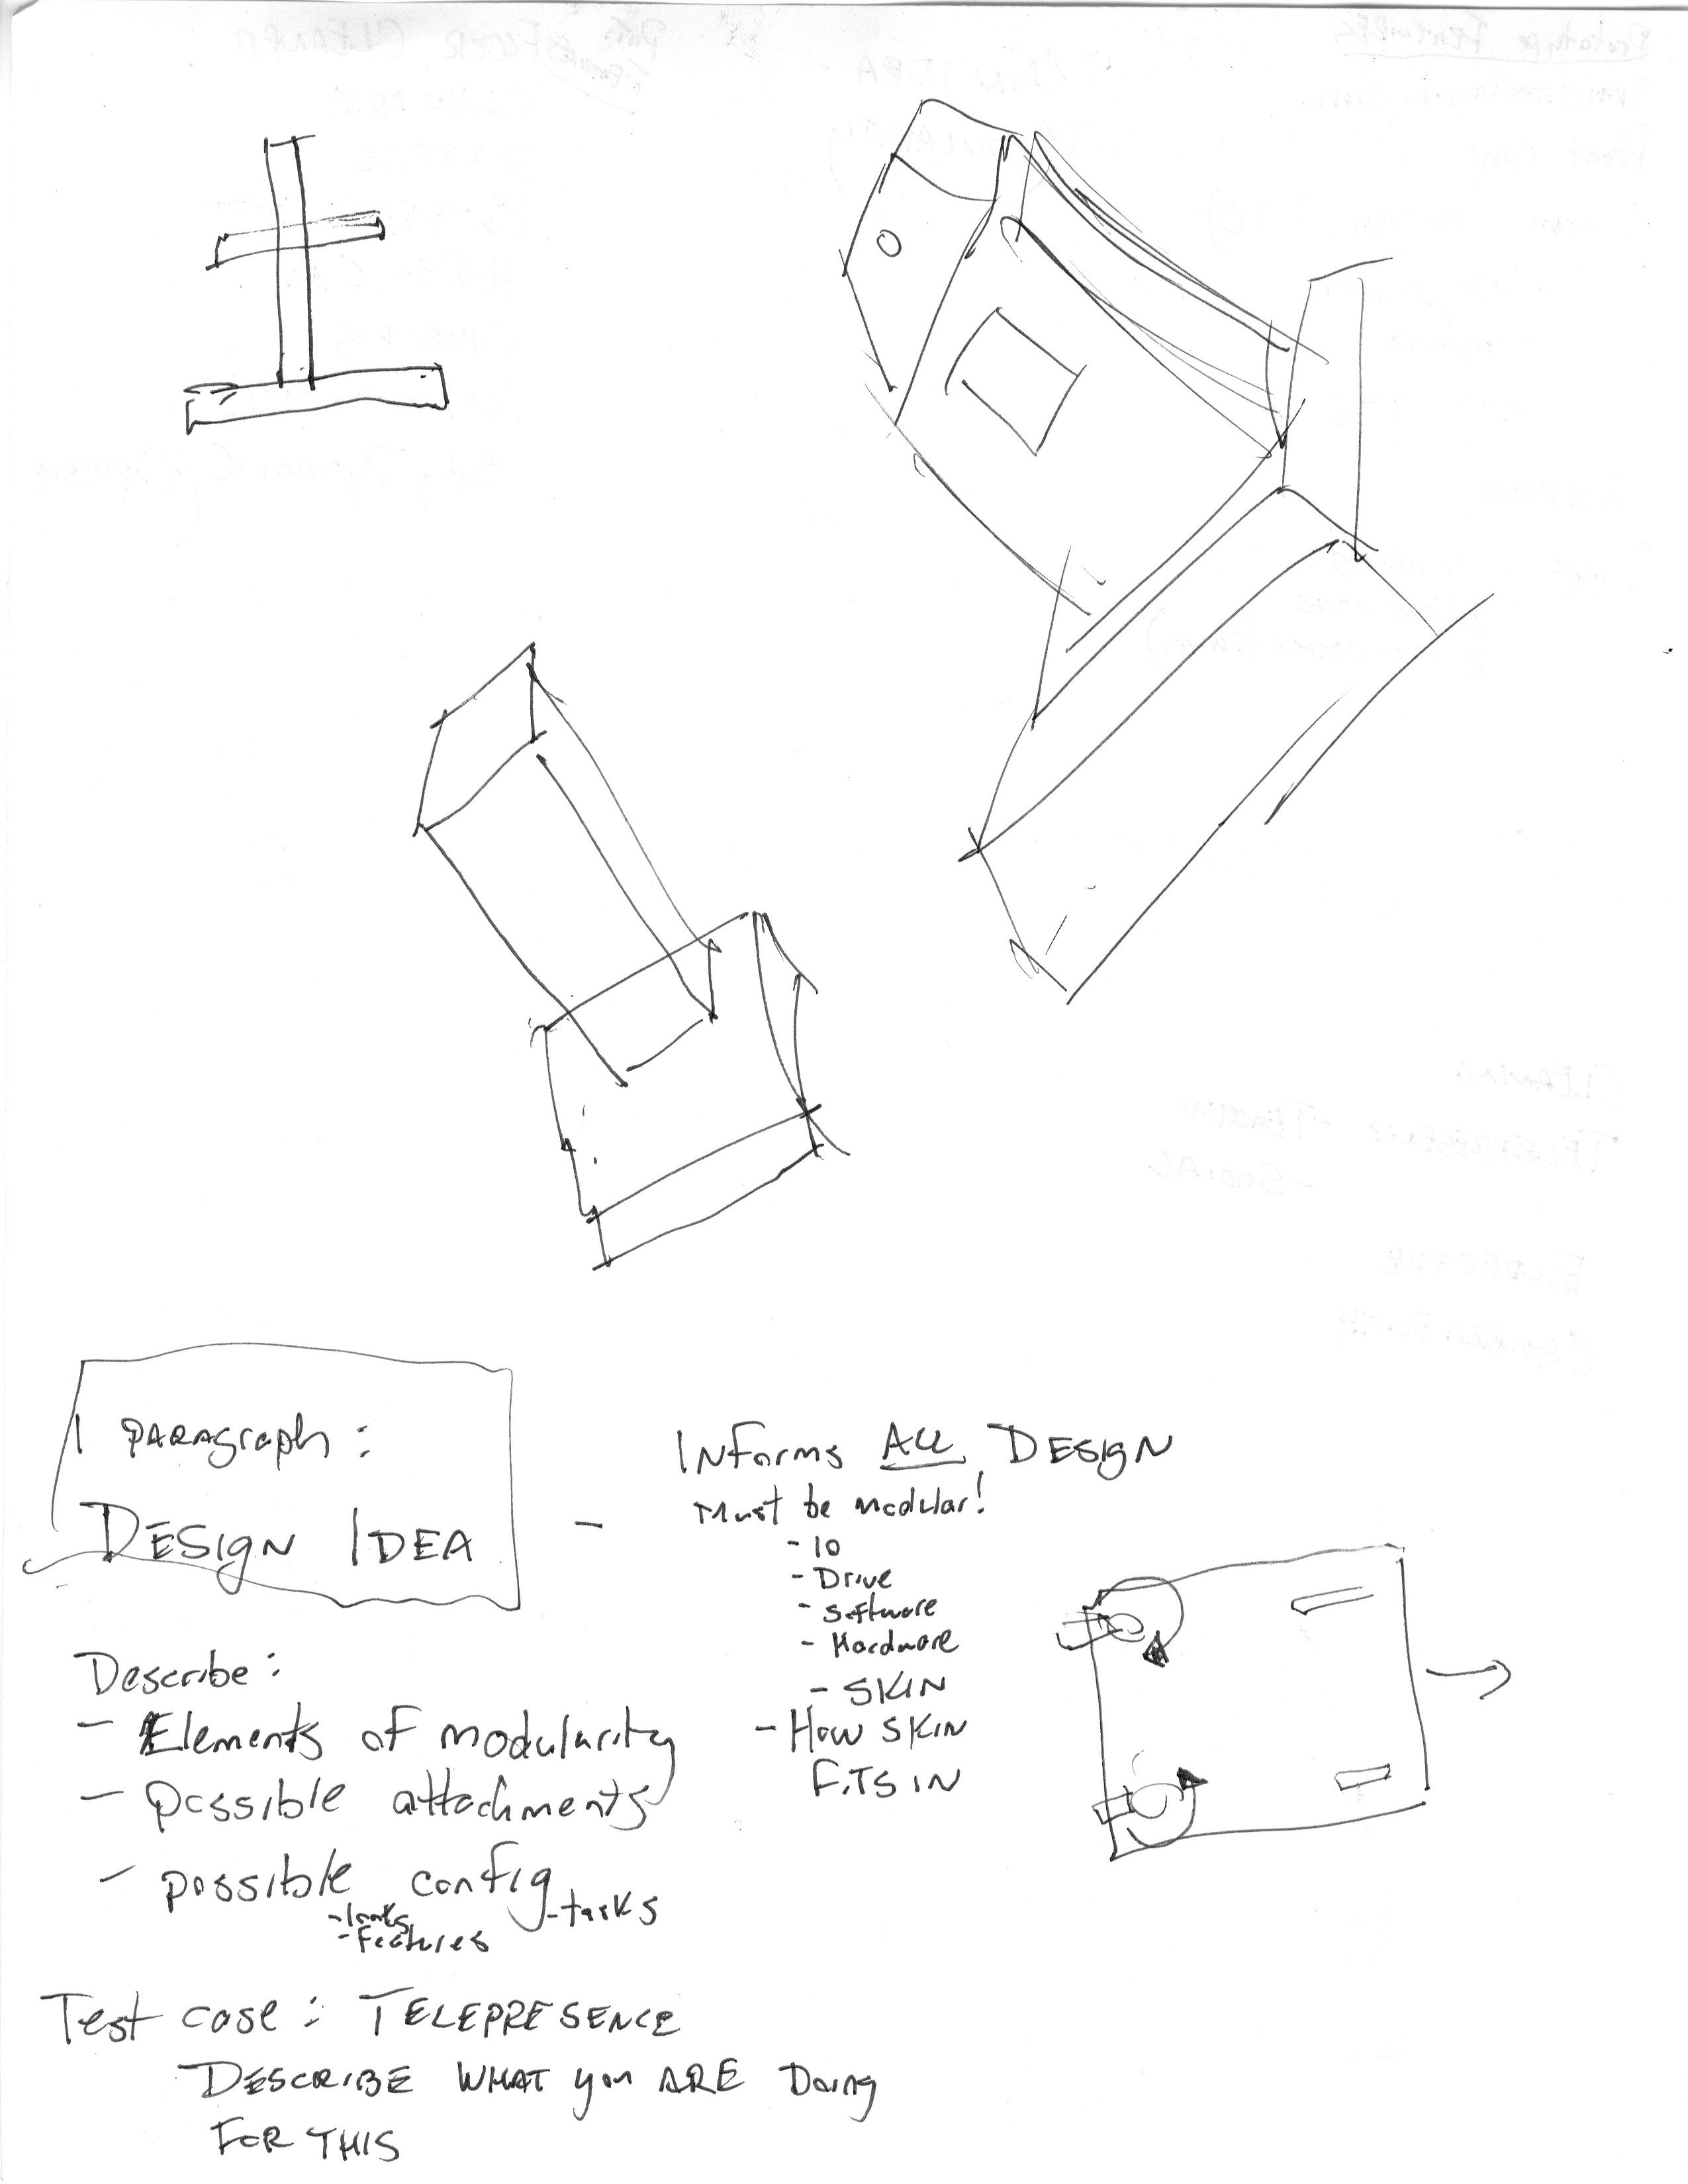 1 PARAGraph:
DESIGN IDEA
-
INForms ALL DESIGN
Must be modular!
- IO
- Drive
- Software
- Hardware
- SKIN
- How SKIN
FITS IN
Describe:
- Elements of modularity
- possible attachments
- possible config
- tasks
- looks
- Features
Test case: TELEPRESENCE
DESCRIBE WHAT you ARE Doing
FOR THIS